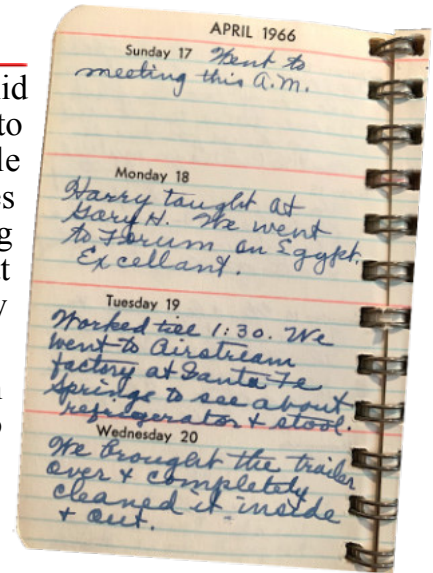 APRIL 1966
Sunday 17 Went to
meeting this A.M.
Monday 18
Harry taught at
Gary H. We went
to Forum on Egypt.
Excellant.
Tuesday 19
Worked till 1:30. We
went to Airstream
factory at Santa Fe
Springs to see about
refrigerator + stool.
Wednesday 20
We brought the trailer
over + completely
cleaned it inside
+ out.